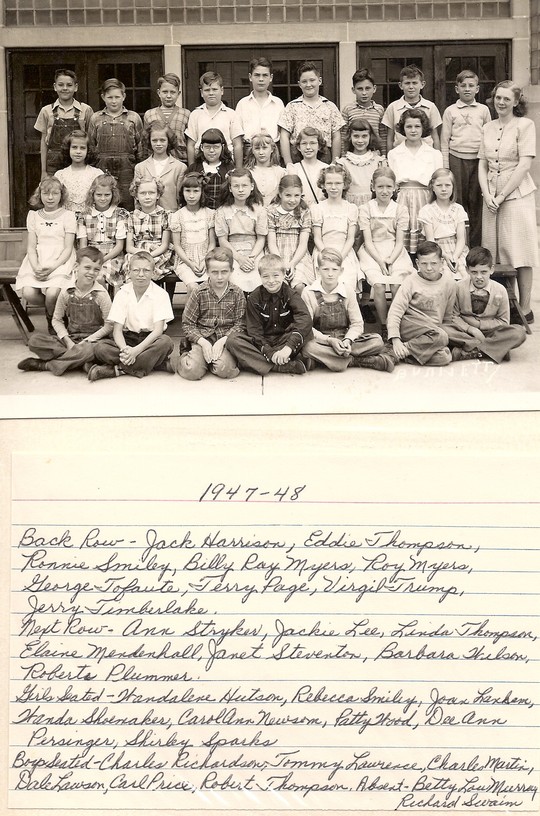 BURNETT
1947-48
Back Row - Jack Harrison, Eddie Thompson,
Ronnie Smiley, Billy Ray Myers, Roy Myers,
George Tofaute, Terry Page, Virgil Trump,
Jerry Timberlake.
Next Row - Ann Stryker, Jackie Lee, Linda Thompson,
Elaine Mendenhall, Janet Steventon, Barbara Wilson,
Roberta Plummer.
Girls Seated - Wandalene Hutson, Rebecca Smiley, Joan Lanham,
Wanda Shoemaker, Carol Ann Newsom, Patty Wood, Dee Ann
Persinger, Shirley Sparks
Boys Seated - Charles Richardson, Tommy Lawrence, Charles Martin,
Dale Lawson, Carl Price, Robert Thompson. Absent - Betty Lou Murray
Richard Swaim